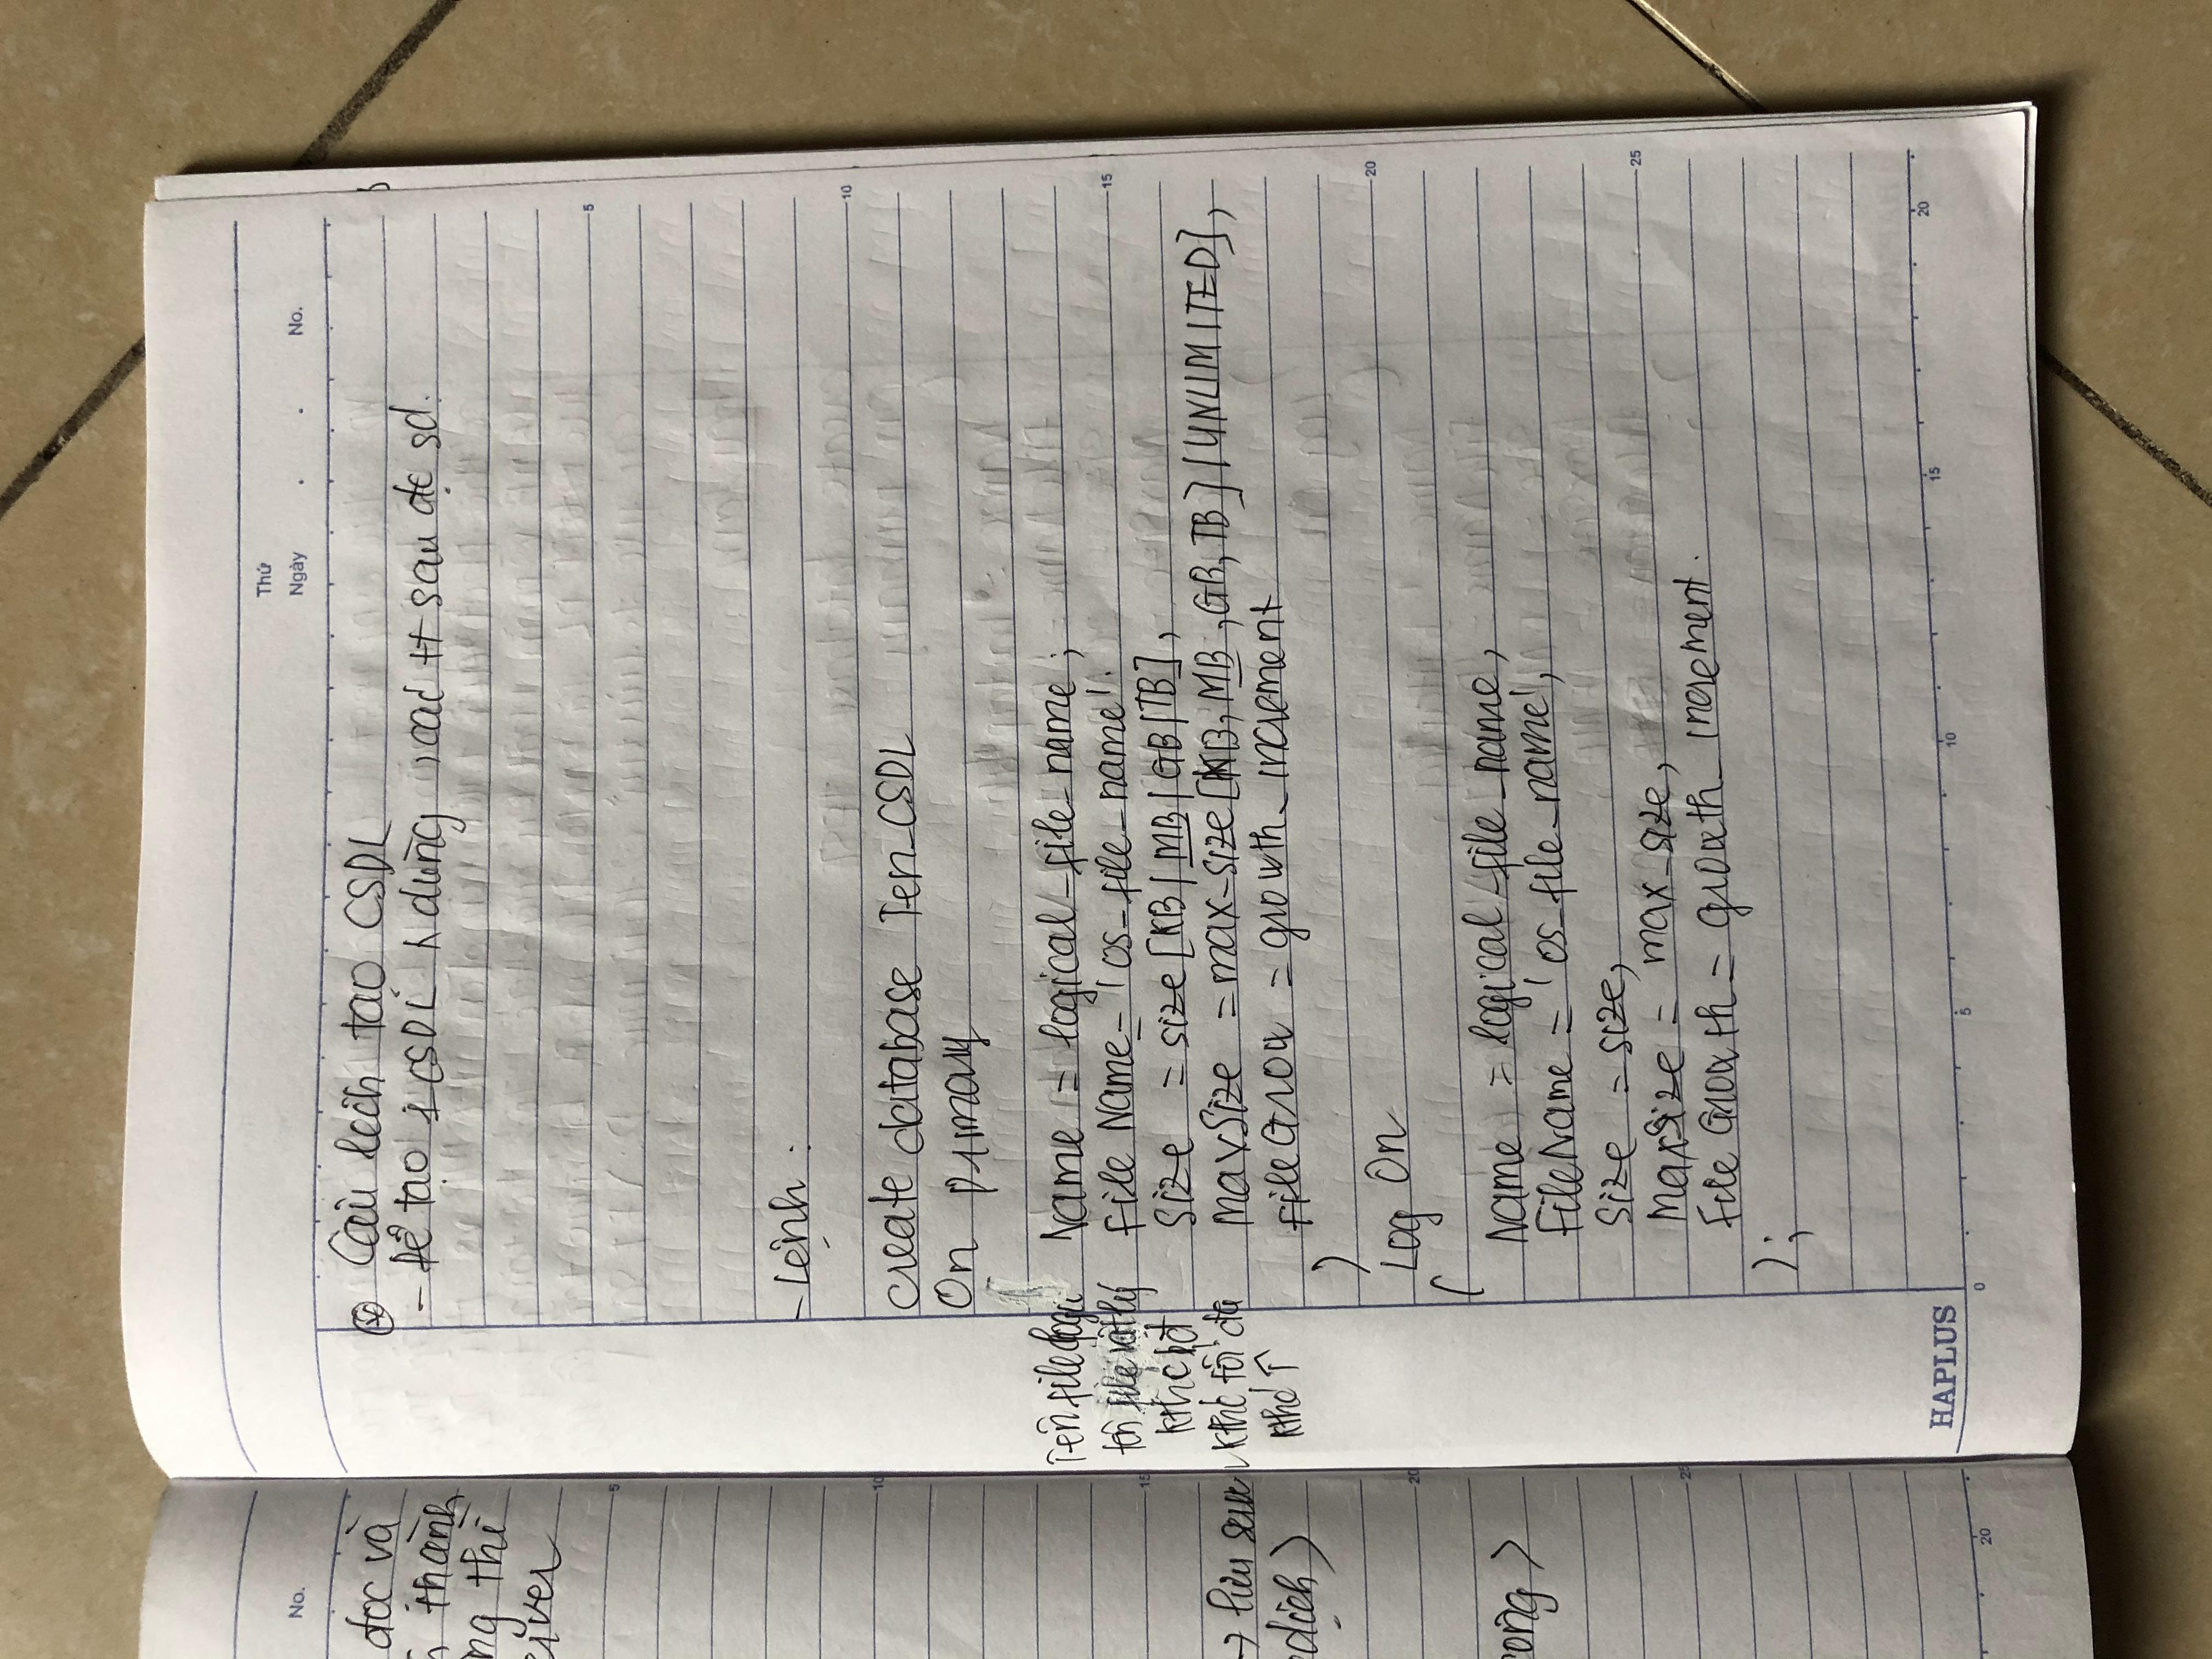 No.
đọc và
thành
ng thì
eiver
5
10
15
→ lưu serve
dịch)
20
ong)
25
20
Thứ
Ngày . . No.
Câu lệnh tạo CSDL
- Để tạo 1 CSDL dùng, các tt sau đc sd.
5
- Lệnh :
10
create database Ten_CSDL
On primary
Tên file logic Name = logical_file_name;
tên file vật lý File Name = 'os_file_name'.
kthc Size = size [KB | MB | GB | TB],
kthc tối đa MaxSize = max_size [KB, MB, GB, TB] | UNLIMITED],
kthc ↑ File Grow = growth_increment
)
Log On
(
Name = logical_file_name,
FileName = 'os_file_name',
Size = size,
MaxSize = max_size,
File Growth = growth_increment.
);
15
20
25
HAPLUS
0 5 10 15 20